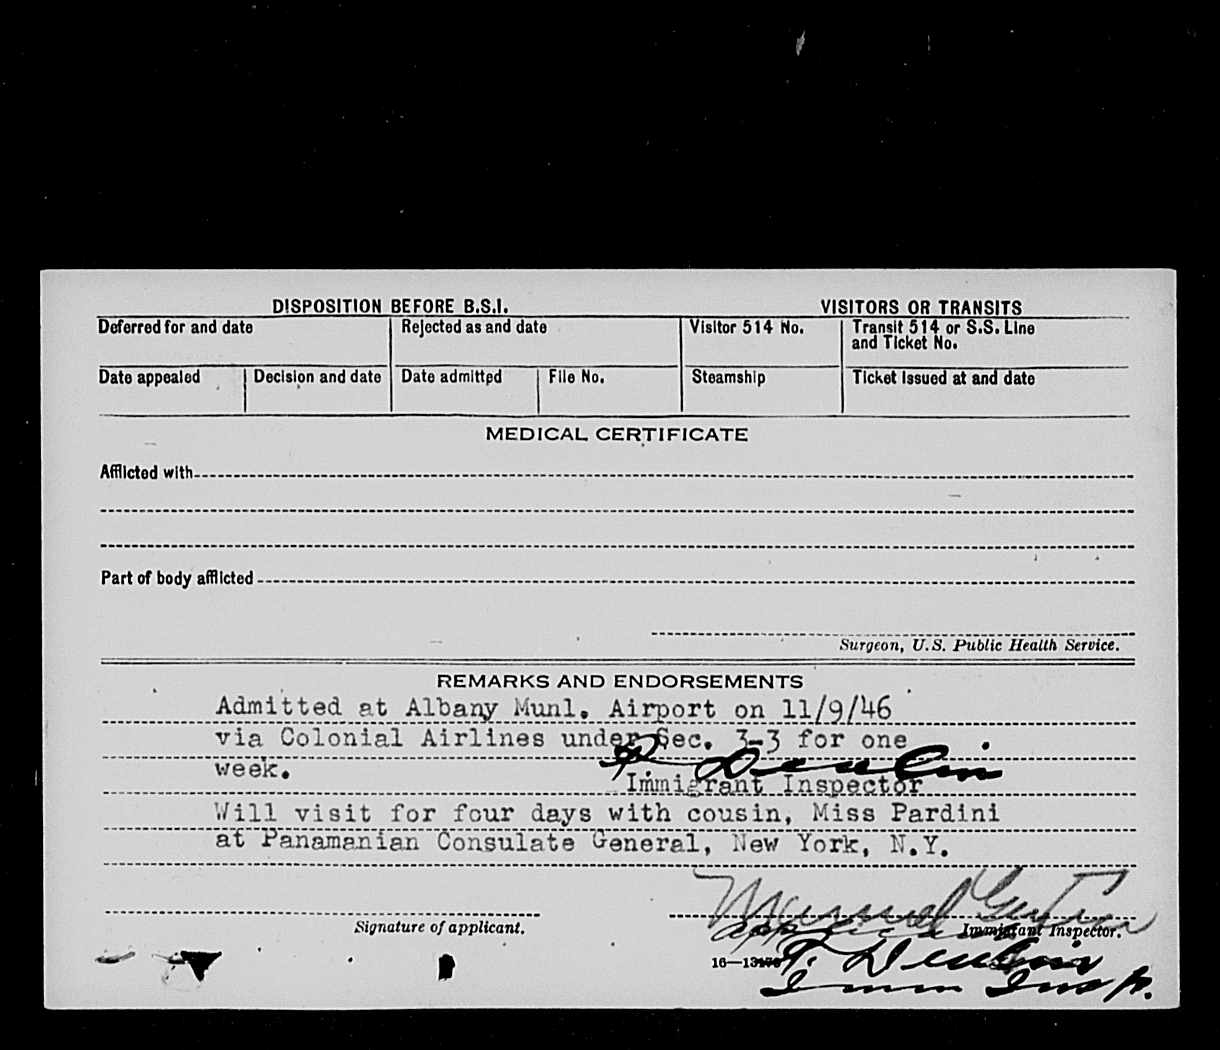 DISPOSITION BEFORE B.S.I. VISITORS OR TRANSITS
Deferred for and date Rejected as and date Visitor 514 No. Transit 514 or S.S. Line and Ticket No.
Date appealed Decision and date Date admitted File No. Steamship Ticket issued at and date
MEDICAL CERTIFICATE
Afflicted with
Part of body afflicted
Surgeon, U.S. Public Health Service.
REMARKS AND ENDORSEMENTS
Admitted at Albany Munl. Airport on 11/9/46
via Colonial Airlines under Sec. 3-3 for one
week.
Immigrant Inspector
Will visit for four days with cousin, Miss Pardini
at Panamanian Consulate General, New York, N.Y.
Manuel
Signature of applicant. Immigrant Inspector.
applicant
16—
Imm Insp.